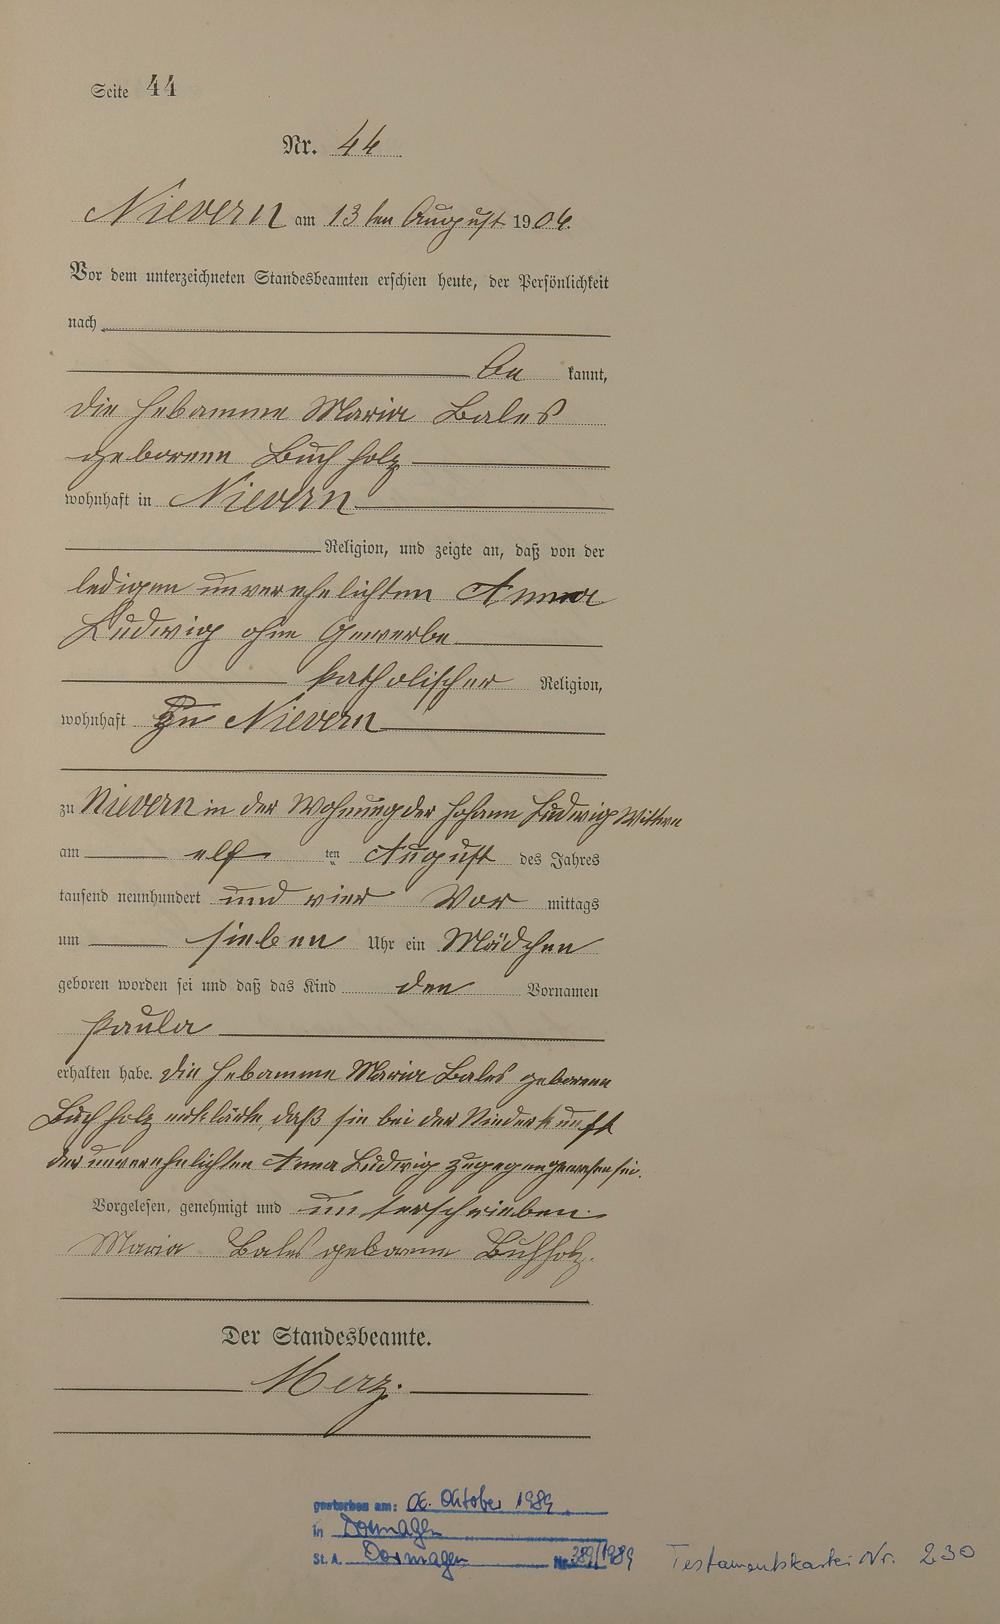 Seite 44
Nr. 44
Nievern am 13ten August 1904.
Vor dem unterzeichneten Standesbeamten erschien heute, der Persönlichkeit
nach
be kannt,
die Hebamme Maria Bales
geborene Buchholz
wohnhaft in Nievern
Religion, und zeigte an, daß von der
ledigen unverehelichten Anna
Ludwig ohne Gewerbe
katholischer Religion,
wohnhaft zu Nievern
zu Nievern in der Wohnung der Johann Ludwig Wittwe
am elf ten August des Jahres
tausend neunhundert und vier Vor mittags
um sieben Uhr ein Mädchen
geboren worden sei und daß das Kind den Vornamen
Paula
erhalten habe. Die Hebamme Maria Bales geborene
Buchholz erklärte, daß sie bei der Niederkunft
der unverehelichten Anna Ludwig zugegen gewesen sei.
Vorgelesen, genehmigt und unterschrieben.
Maria Bales geborene Buchholz.
Der Standesbeamte.
Merz.
gestorben am: 06. Oktober 1989
in Dormagen
St. A. Dormagen Nr. 389/1989
Testamentskartei Nr. 230